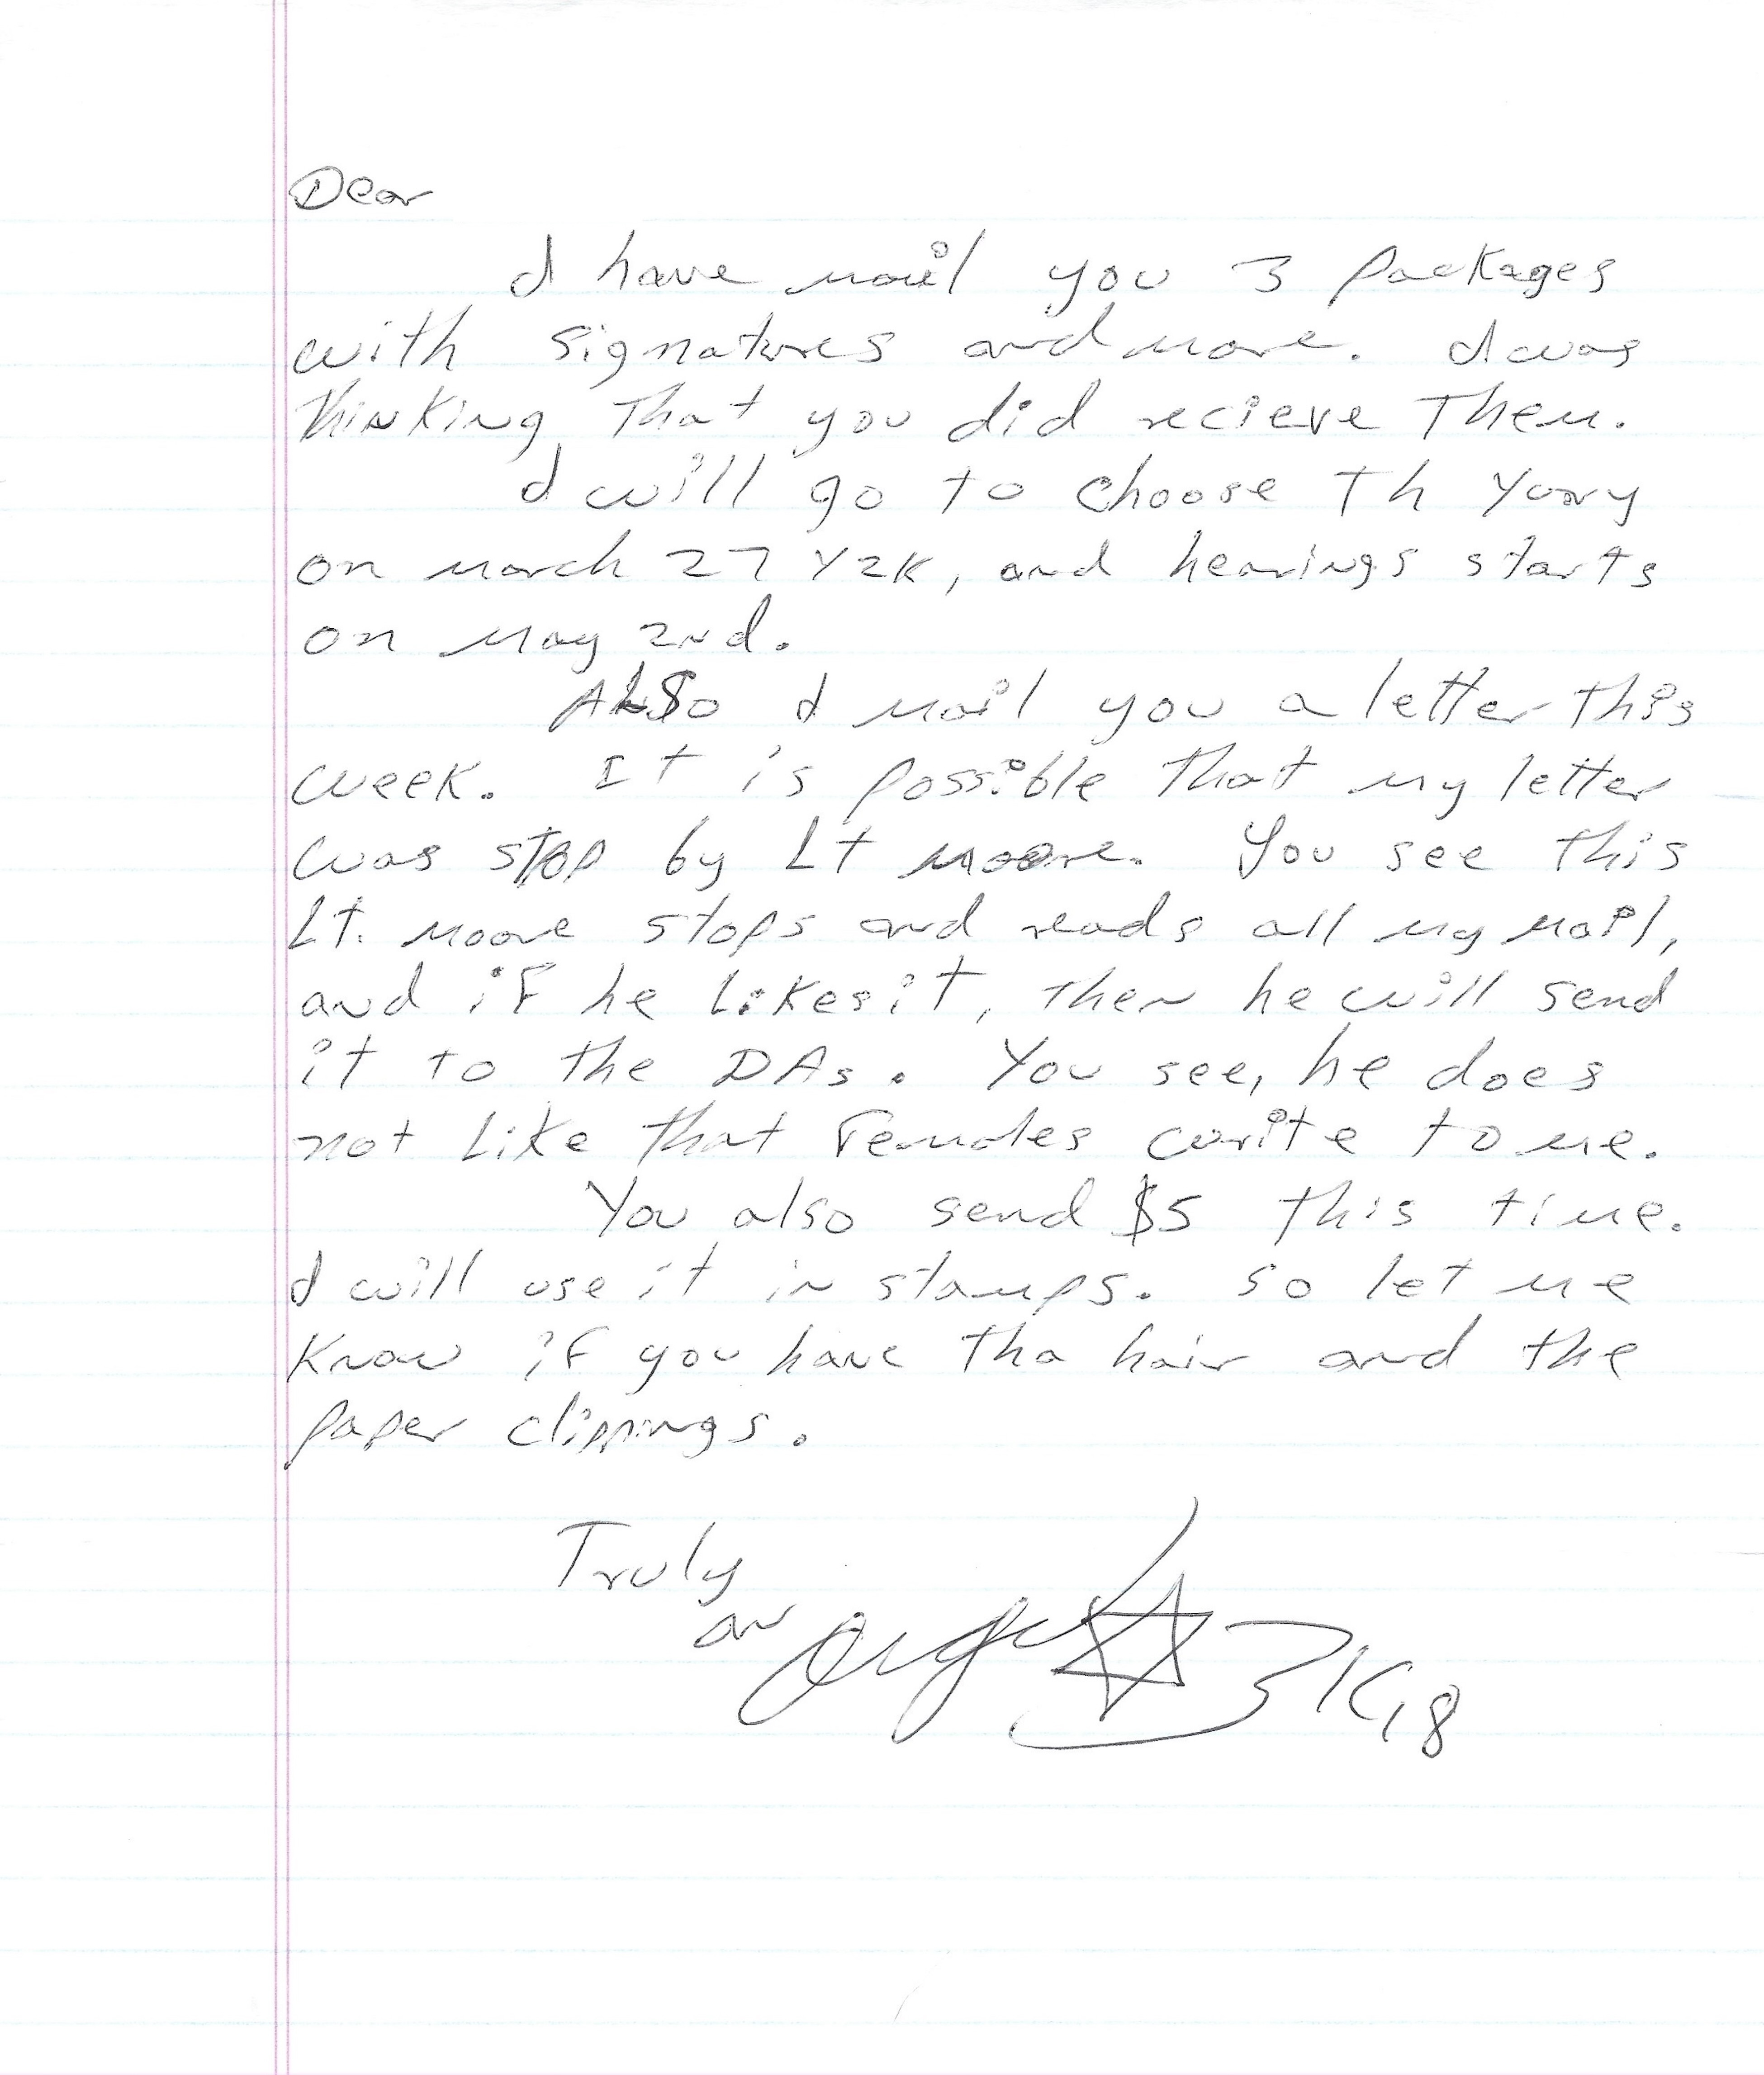 Dear
I have mail you 3 packages
with signatures and more. I was
thinking that you did recieve them.
I will go to choose Th Yury
on march 27 Y2K, and hearings starts
on may 2nd.
ALSo I mail you a letter this
week. It is possible that my letter
was stop by Lt moore. You see this
Lt. moore stops and reads all my mail,
and if he likes it, then he will send
it to the DAs. You see, he does
not like that Females write to me.
You also send $5 this time.
I will use it in stamps. so let me
know if you have tha hair and the
paper clippings.
Truly
an Angel